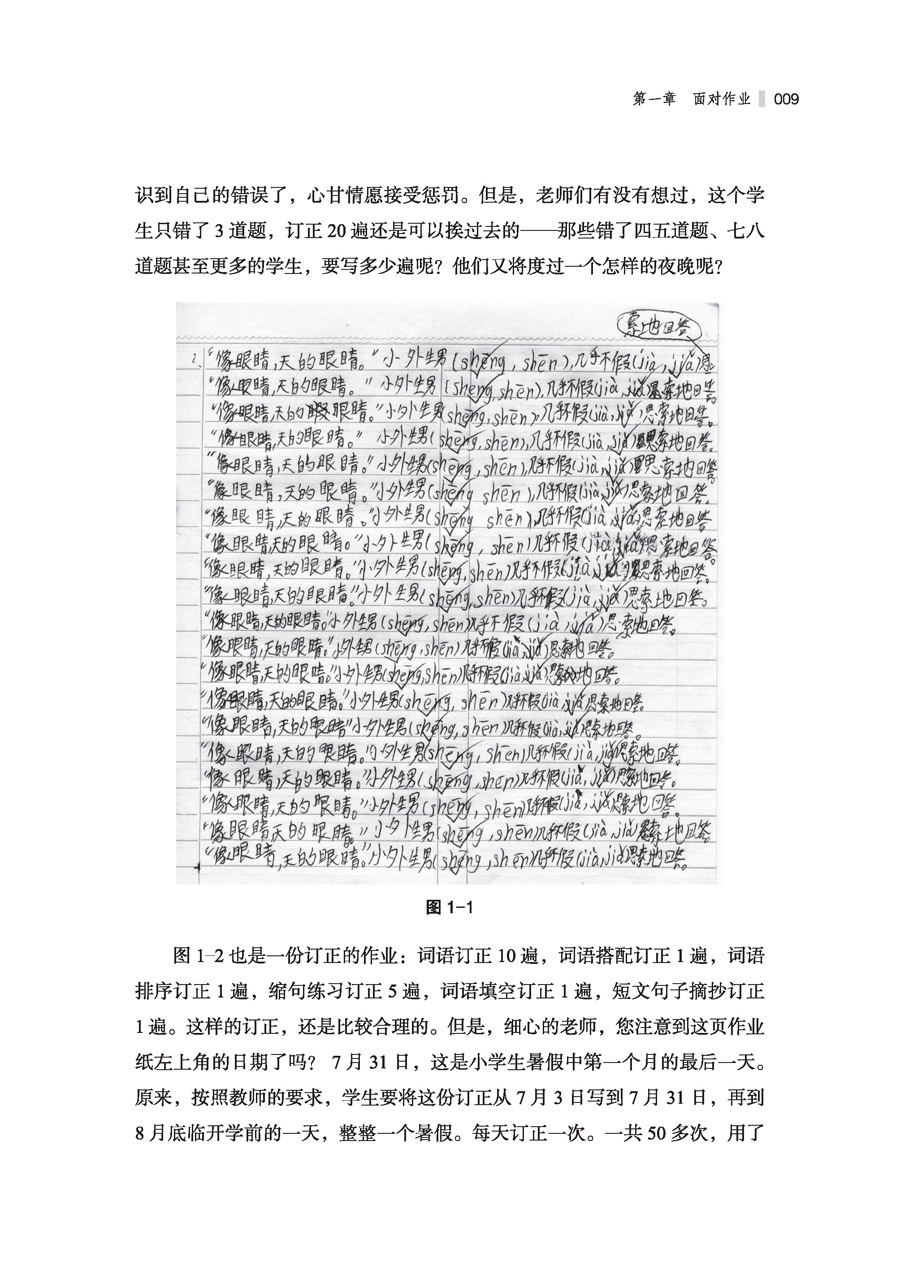 第一章 面对作业 009
识到自己的错误了，心甘情愿接受惩罚。但是，老师们有没有想过，这个学
生只错了 3 道题，订正 20 遍还是可以挨过去的——那些错了四五道题、七八
道题甚至更多的学生，要写多少遍呢？他们又将度过一个怎样的夜晚呢？
索地回答
2、“像眼睛,天的眼睛。”小外生男(shēng,shēn),几乎不假(jià,jiǎ)思
“像眼睛,天的眼睛。”小外生男(shēng,shēn),几乎不假(jià,jiǎ)思索地回答。
“像眼睛,天的眼睛。”小外生男(shēng,shēn),几乎不假(jià,jiǎ)思索地回答。
“像眼睛,天的眼睛。”小外生男(shēng,shēn),几乎不假(jià,jiǎ)思索地回答。
“像眼睛,天的眼睛。”小外生男(shēng,shēn)几乎不假(jià,jiǎ)思索地回答
“像眼睛,天的眼睛。”小外生男(shēng shēn),几乎不假(jià,jiǎ)思索地回答。
“像眼睛,天的眼睛。”小外生男(shēng shēn),几乎不假(jià,jiǎ)思索地回答
“像眼睛天的眼睛。”小外生男(shēng,shēn)几乎不假(jià,jiǎ)思索地回答。
“像眼睛,天的眼睛。”小外生男(shēng,shēn)几乎不假(jià,jiǎ)思索地回答。
“像眼睛,天的眼睛。”小外生男(shēng,shēn)几乎不假(jià,jiǎ)思索地回答。
“像眼睛,天的眼睛。”小外生男(shēng,shēn)几乎不假(jià,jiǎ)思索地回答。
“像眼睛,天的眼睛。”小外生男(shēng,shēn)几乎不假(jià,jiǎ)思索地回答。
“像眼睛,天的眼睛。”小外生男(shēng,shēn)几乎不假(jià,jiǎ)思索地回答。
“像眼睛,天的眼睛。”小外生男(shēng,shēn)几乎不假(jià,jiǎ)思索地回答。
“像眼睛,天的眼睛”小外生男(shēng,shēn)几乎不假(jià,jiǎ)思索地回答。
“像眼睛,天的眼睛。”小外生男(shēng,shēn)几乎不假(jià,jiǎ)思索地回答。
“像眼睛,天的眼睛。”小外生男(shēng,shēn)几乎不假(jià,jiǎ)思索地回答。
“像眼睛,天的眼睛。”小外生男(shēng,shēn)几乎不假(jià,jiǎ)思索地回答。
“像眼睛天的眼睛。”小外生男(shēng,shēn)几乎不假(jià,jiǎ)思索地回答。
“像眼睛,天的眼睛。”小外生男(shēng,shēn)几乎不假(jià,jiǎ)思索地回答。
图 1-1
图 1-2 也是一份订正的作业：词语订正 10 遍，词语搭配订正 1 遍，词语
排序订正 1 遍，缩句练习订正 5 遍，词语填空订正 1 遍，短文句子摘抄订正
1 遍。这样的订正，还是比较合理的。但是，细心的老师，您注意到这页作业
纸左上角的日期了吗？ 7 月 31 日，这是小学生暑假中第一个月的最后一天。
原来，按照教师的要求，学生要将这份订正从 7 月 3 日写到 7 月 31 日，再到
8 月底临开学前的一天，整整一个暑假。每天订正一次。一共 50 多次，用了